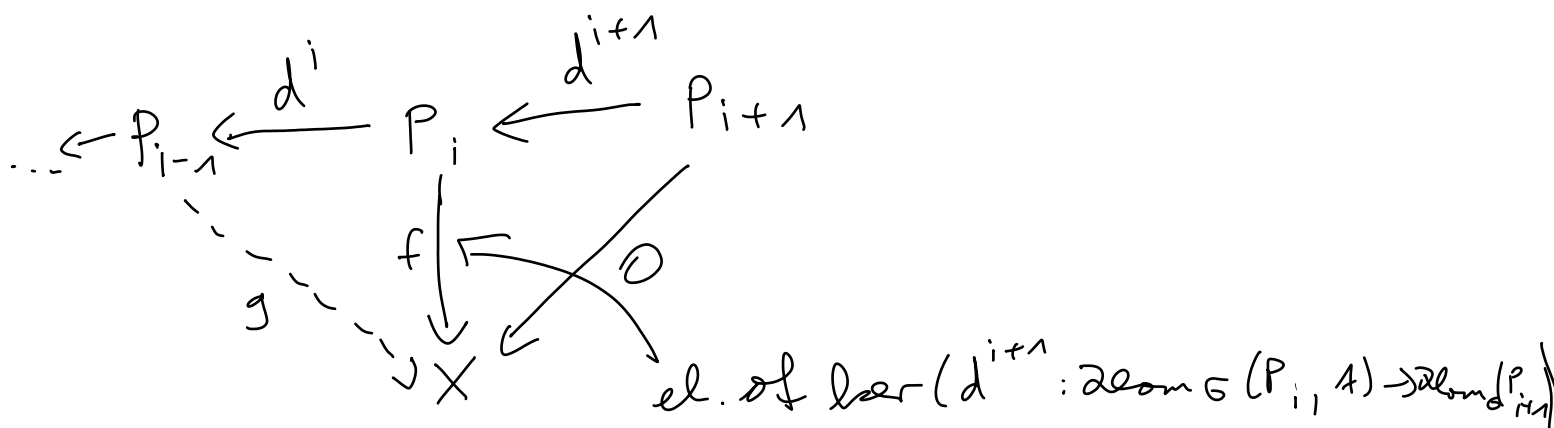 d^i d^{i+1}
... ← P_{i-1} ← P_i ← P_{i+1}
f 0
g
X el. of ker(d^{i+1} : Hom_G(P_i, A) → Hom_G(P_{i+1}